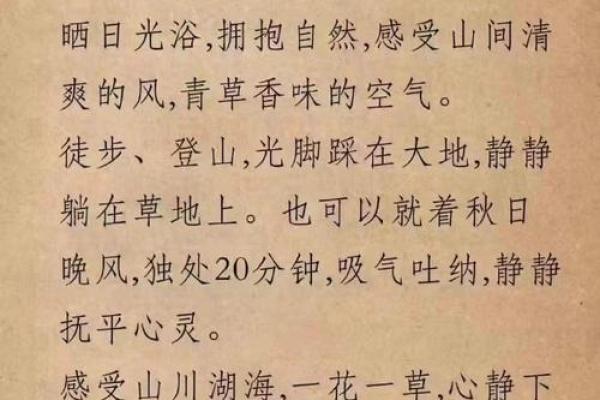 晒日光浴,拥抱自然,感受山间清
爽的风,青草香味的空气。
徒步、登山,光脚踩在大地,静静
躺在草地上。也可以就着秋日
晚风,独处20分钟,吸气吐纳,静静
抚平心灵。
感受山川湖海,一花一草,心静下